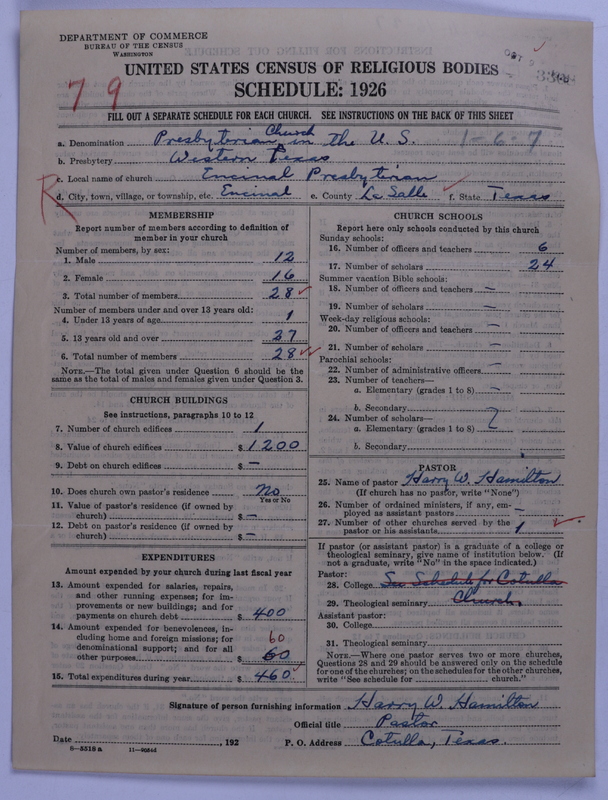 DEPARTMENT OF COMMERCE
BUREAU OF THE CENSUS
WASHINGTON
7 9
UNITED STATES CENSUS OF RELIGIOUS BODIES
SCHEDULE: 1926
FILL OUT A SEPARATE SCHEDULE FOR EACH CHURCH. SEE INSTRUCTIONS ON THE BACK OF THIS SHEET
a. Denomination Presbyterian Church in the U. S. 1-6-7
b. Presbytery Western Texas
c. Local name of church Encinal Presbyterian
R
d. City, town, village, or township, etc. Encinal e. County La Salle f. State Texas
MEMBERSHIP
Report number of members according to definition of
member in your church
Number of members, by sex:
1. Male 12
2. Female 16
3. Total number of members 28
Number of members under and over 13 years old:
4. Under 13 years of age 1
5. 13 years old and over 27
6. Total number of members 28
NOTE.—The total given under Question 6 should be
same as the total of males and females given under Question 3.
CHURCH BUILDINGS
See instructions, paragraphs 10 to 12
7. Number of church edifices 1
8. Value of church edifices $ 1200
9. Debt on church edifices $ —
10. Does church own pastor's residence No
Yes or No
11. Value of pastor's residence (if owned by
church) $ —
12. Debt on pastor's residence (if owned by
church) $ —
EXPENDITURES
Amount expended by your church during last fiscal year
13. Amount expended for salaries, repairs,
and other running expenses; for im-
provements or new buildings; and for
payments on church debt $ 400
14. Amount expended for benevolences, in-
cluding home and foreign missions; for 60
denominational support; and for all
other purposes $ 60
15. Total expenditures during year $ 460
CHURCH SCHOOLS
Report here only schools conducted by this church
Sunday schools:
16. Number of officers and teachers 6
17. Number of scholars 24
Summer vacation Bible schools:
18. Number of officers and teachers —
19. Number of scholars —
Week-day religious schools:
20. Number of officers and teachers —
21. Number of scholars —
Parochial schools:
22. Number of administrative officers —
23. Number of teachers—
a. Elementary (grades 1 to 8) —
b. Secondary
24. Number of scholars—
a. Elementary (grades 1 to 8)
b. Secondary
PASTOR
25. Name of pastor Harry W. Hamilton
(If church has no pastor, write "None")
26. Number of ordained ministers, if any, em-
ployed as assistant pastors —
27. Number of other churches served by the
pastor or his assistants 1
If pastor (or assistant pastor) is a graduate of a college or
theological seminary, give name of institution below. (If
not a graduate, write "No" in the space indicated.)
Pastor:
28. College See Schedule for Cotulla
29. Theological seminary Church
Assistant pastor:
30. College
31. Theological seminary
NOTE.—Where one pastor serves two or more churches,
Questions 28 and 29 should be answered only on the schedule
for one of the churches; on the schedules for the other churches,
write "See schedule for church."
Signature of person furnishing information Harry W. Hamilton
Official title Pastor
Date , 192 P. O. Address Cotulla, Texas.
8-5518 a